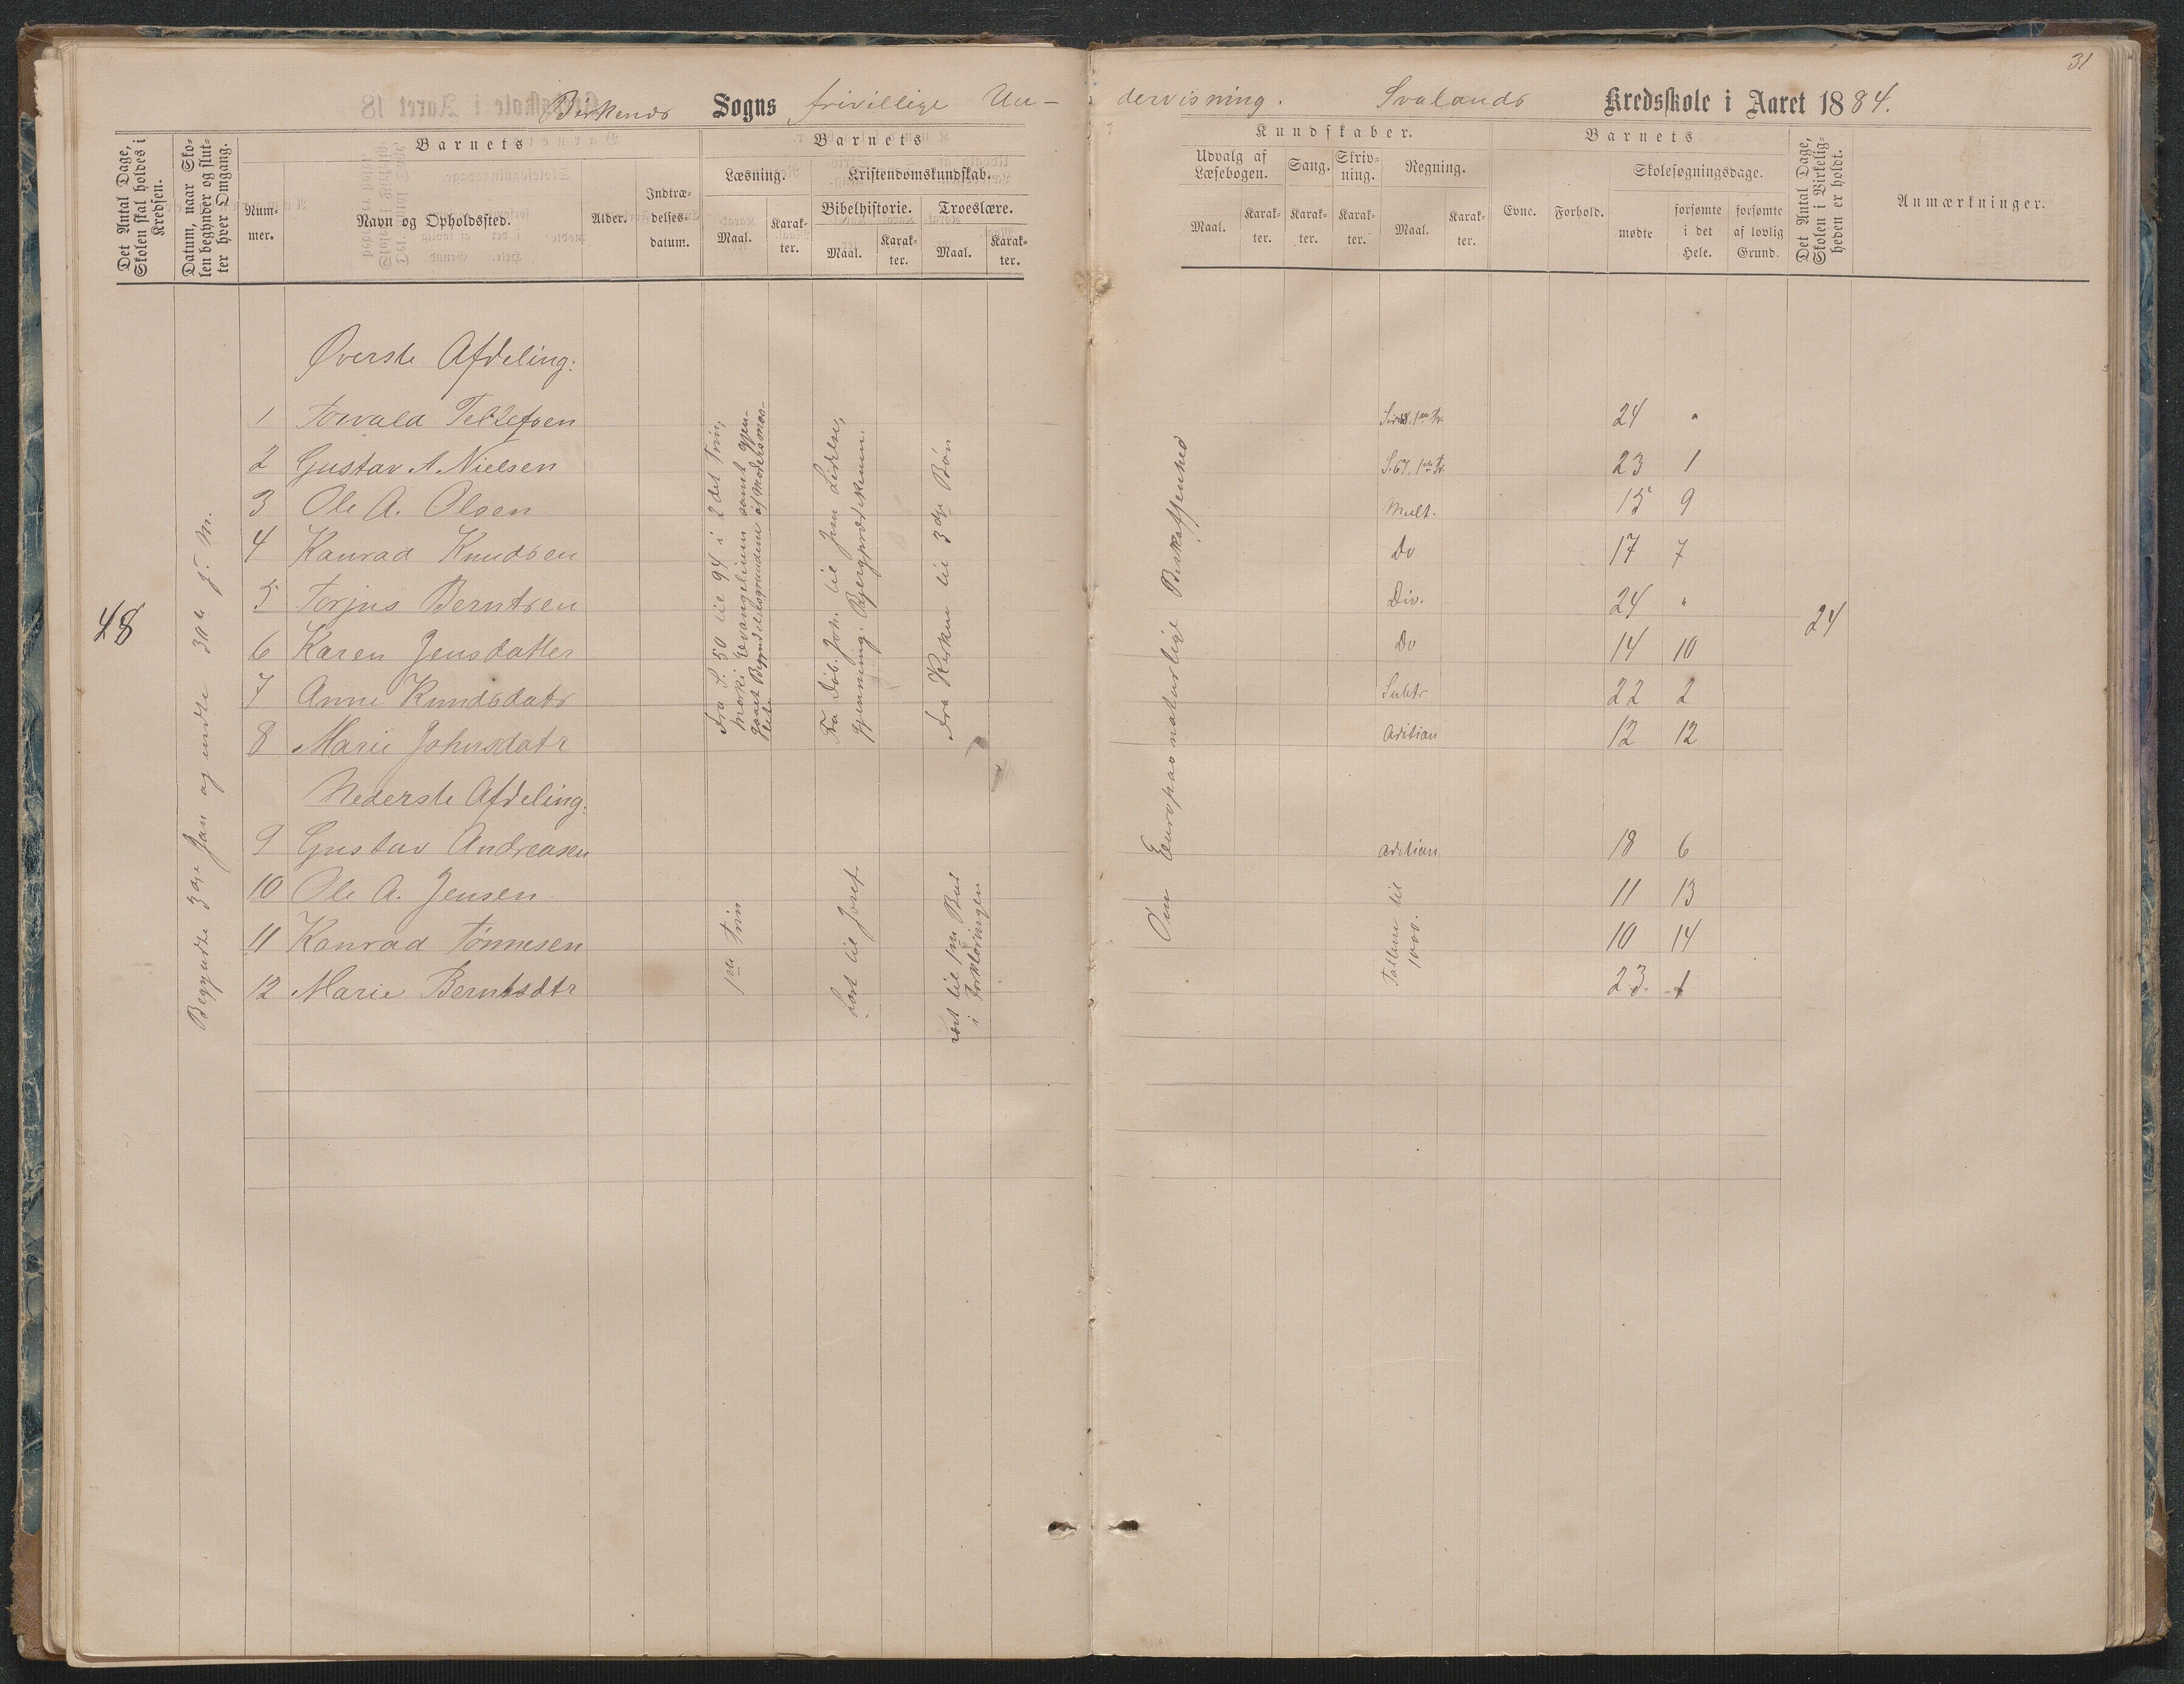 31
Birkenes Sogns frivillige Un-
dervisning. Svalands Kredsskole i Aaret 1884.
Det Antal Dage, Skolen skal holdes i Kredsen.
Datum, naar Skolen begynder og slutter hver Omgang.
Barnets
Nummer.
Navn og Opholdssted.
Alder.
Indtrædelsesdatum.
Barnets
Læsning.
Maal.
Karakter.
Kristendomskundskab.
Bibelhistorie.
Maal.
Karakter.
Troeslære.
Maal.
Karakter.
Kundskaber.
Udvalg af Læsebogen.
Maal.
Karakter.
Sang.
Karakter.
Skrivning.
Karakter.
Regning.
Maal.
Karakter.
Barnets
Evne.
Forhold.
Skolesøgningsdage.
mødte
forsømte i det Hele.
forsømte af lovlig Grund.
Det Antal Dage, Skolen i Virkeligheden er holdt.
Anmærkninger.
48
Begyndte 3die Jan og endte 30te f. M.
Øverste Afdeling:
1 Torvald Tellefsen 24 "
2 Gustav A. Nielsen S. 67, 1ste Tr. 23 1
3 Ole A. Olsen Mult. 15 9
4 Konrad Knudsen Do 17 7
5 Torjus Berntsen Div. 24 "
6 Karen Jensdatter Do 14 10
7 Anne Knudsdatr Subtr 22 2
8 Marie Johnsdatr Adition 12 12
Nederste Afdeling:
9 Gustav Andreasen Adition 18 6
10 Ole A. Jensen 11 13
11 Konrad Tønnesen 10 14
12 Marie Berntsdtr 23 1
fra S. 50 til 94 i 2det Trin,
Fra Døb. Joh. til Jesu Lidelse,
gjennemg. Bjergprædikenen.
fra Kirken til 3die Bøn
1ste Trin
læst til Josef
læst til
i Forklaringen
Om Europas naturlige Beskaffenhed
Tallene til
1000.
24